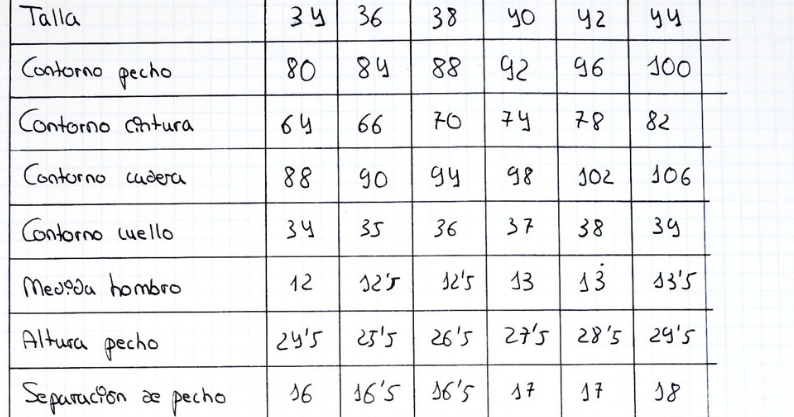 Talla 34 36 38 40 42 44
Contorno pecho 80 84 88 92 96 100
Contorno cintura 64 66 70 74 78 82
Contorno cadera 88 90 94 98 102 106
Contorno cuello 34 35 36 37 38 39
Medida hombro 12 12'5 12'5 13 13 13'5
Altura pecho 24'5 25'5 26'5 27'5 28'5 29'5
Separación de pecho 16 16'5 16'5 17 17 18